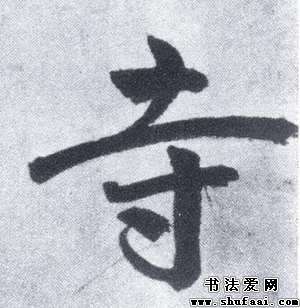 寺
书法爱网
www.shufaai.com